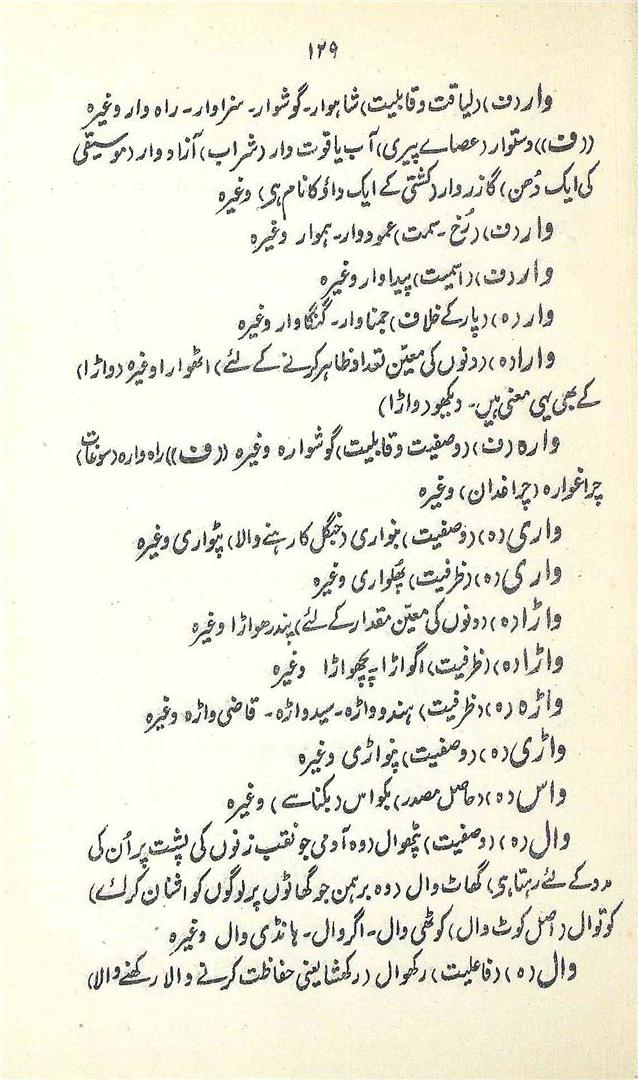 ۱۲۹
وار (ف) (لیاقت و قابلیت) شاہوار۔ گوشوار۔ سزاوار۔ راہ وار وغیرہ
((ف)) دستوار (عصاے پیری) آب یاقوت وار (شراب) آزاد وار (موسیقی
کی ایک دُھن) گازر وار (کشتی کے ایک داؤ کا نام ہی) وغیرہ
وار (ف) (رُخ۔ سمت) عمود وار۔ ہموار وغیرہ
وار (ف) (اسمیت) پیداوار وغیرہ
وار (ہ) (پار کے خلاف) جمنا وار۔ گنگا وار وغیرہ
وارا (ہ) (دنوں کی معیّن تعداد ظاہر کرنے کے لئے) اٹھوارا وغیرہ (واڑا)
کے بھی یہی معنی ہیں۔ دیکھو (واڑا)
وارہ (ف) (وصفیت و قابلیت) گوشوارہ وغیرہ ((ف)) راہ وارہ (سوغات)
چراغوارہ (چراغدان) وغیرہ
واری (ہ) (وصفیت) بنواری (جنگل کا رہنے والا) پٹواری وغیرہ
واری (ہ) (ظرفیت) پھلواری وغیرہ
واڑا (ہ) (دنوں کی معیّن مقدار کے لئے) پندرھواڑا وغیرہ
واڑا (ہ) (ظرفیت) اگواڑا۔ پچھواڑا وغیرہ
واڑہ (ہ) (ظرفیت) ہندو واڑہ۔ سید واڑہ۔ قاضی واڑہ وغیرہ
واڑی (ہ) (وصفیت) پنواڑی وغیرہ
واس (ہ) (حاصل مصدر) بکواس (بکنا سے) وغیرہ
وال (ہ) (وصفیت) پٹھوال (وہ آدمی جو نقب زنوں کی پشت پر اُن کی
مدد کے لئے رہتا ہی) گھاٹ وال (وہ برہمن جو گھاٹوں پر لوگوں کو اشنان کرائے)
کوتوال (اصل کوٹ وال) کوٹھی وال۔ اگروال۔ ہانڈی وال وغیرہ
وال (ہ) (فاعلیت) رکھوال (رکھشا یعنی حفاظت کرنے والا رکھنے والا)